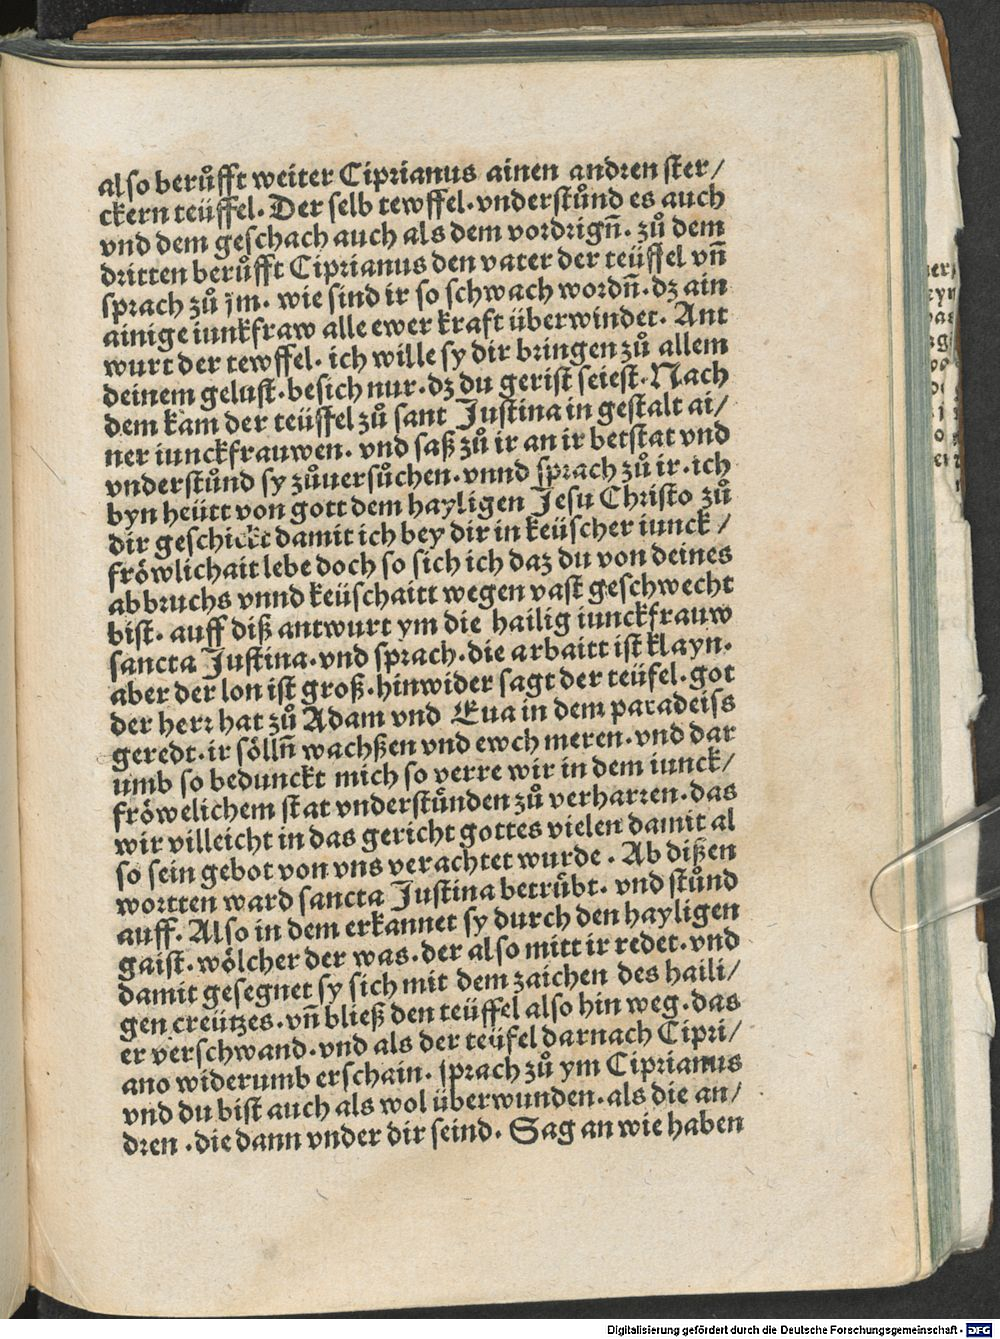 also berůfft weiter Ciprianus ainen andren ster/
ckern teüffel. Der selb tewffel. vnderstůnd es auch
vnd dem geschach auch als dem vordrign̄. zů dem
dritten berůfft Ciprianus den vater der teüffel vn̄
sprach zů jm. wie sind ir so schwach wordn̄. dz ain
ainige iunkfraw alle ewer kraft überwindet. Ant
wurt der tewffel. ich wille sy dir bringen zů allem
deinem gelust. besich nur. dz du gerist seiest. Nach
dem kam der teüffel zů sant Justina in gestalt ai/
ner iunckfrauwen. vnd saß zů ir an ir betstat vnd
vnderstůnd sy zůuersůchen. vnnd sprach zů ir. ich
byn heütt von gott dem hayligen Jesu Christo zů
dir geschickt damit ich bey dir in keüscher iunck/
fröwlichait lebe doch so sich ich daz du von deines
abbruchs vnnd keüschaitt wegen vast geschwecht
bist. auff diß antwurt ym die hailig iunckfrauw
sancta Justina. vnd sprach. die arbaitt ist klayn.
aber der lon ist groß. hinwider sagt der teüfel. got
der herr hat zů Adam vnd Eua in dem paradeiss
geredt. ir sölln̄ wachßen vnd ewch meren. vnd dar
umb so bedunckt mich so verre wir in dem iunck/
fröwelichem stat vnderstůnden zů verharren. das
wir villeicht in das gericht gottes vielen damit al
so sein gebot von vns verachtet wurde. Ab dißen
wortten ward sancta Justina betrůbt. vnd stůnd
auff. Also in dem erkannet sy durch den hayligen
gaist. wölcher der was. der also mitt ir redet. vnd
damit gesegnet sy sich mit dem zaichen des haili/
gen creützes. vn̄ bließ den teüffel also hin weg. das
er verschwand. vnd als der teüfel darnach Cipri/
ano widerumb erschain. sprach zů ym Ciprianus
vnd du bist auch als wol überwunden. als die an/
dren. die dann vnder dir seind. Sag an wie haben
Digitalisierung gefördert durch die Deutsche Forschungsgemeinschaft - DFG